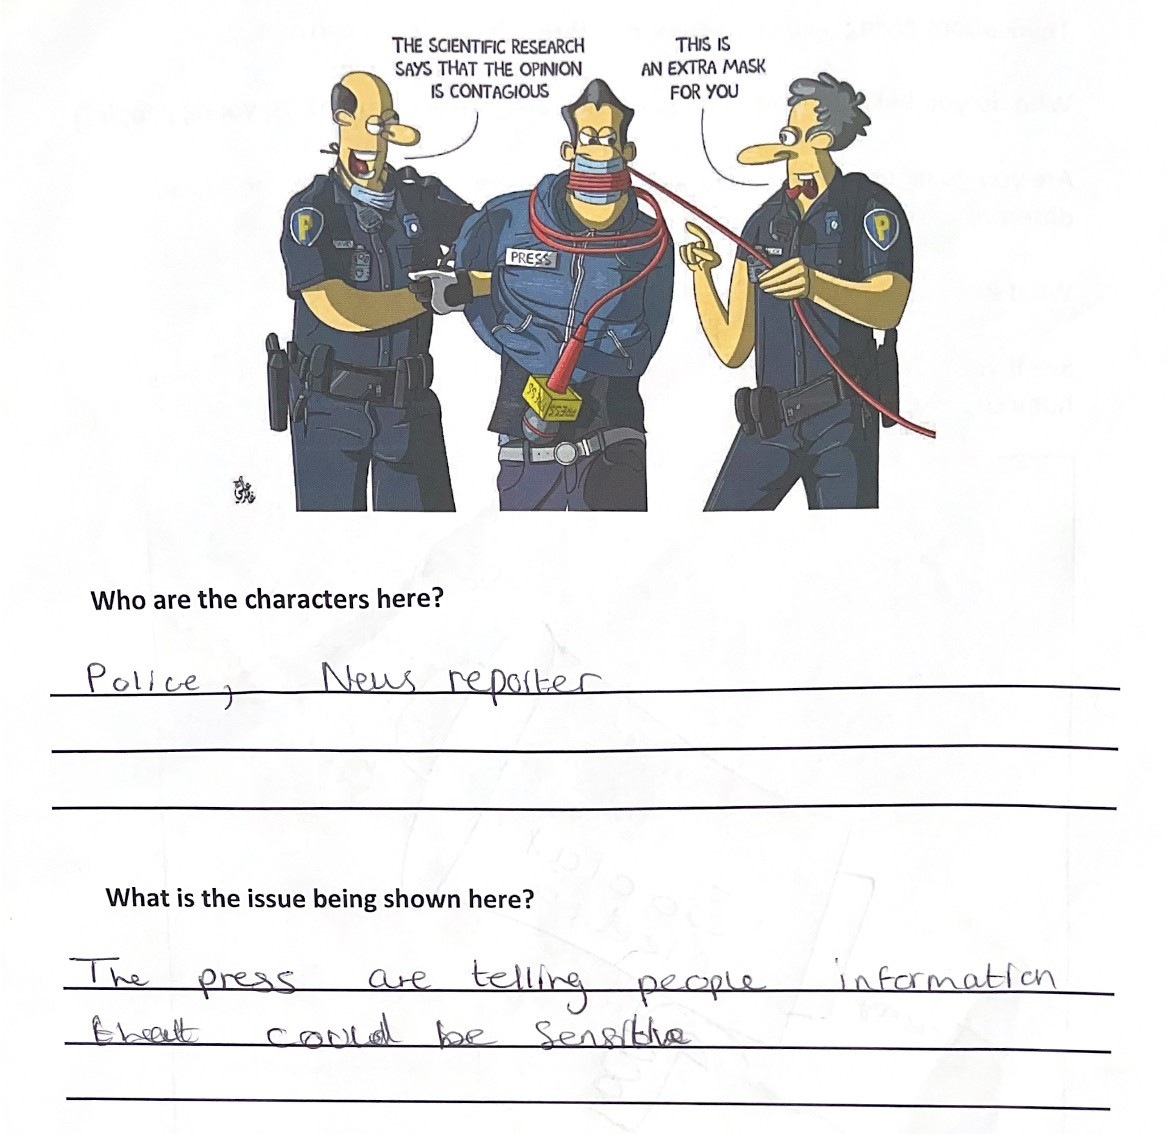 THE SCIENTIFIC RESEARCH
SAYS THAT THE OPINION
IS CONTAGIOUS
THIS IS
AN EXTRA MASK
FOR YOU
P
P
PRESS
PRESS
PRESS
Who are the characters here?
Police, News reporter
What is the issue being shown here?
The press are telling people information
that could be sensitive